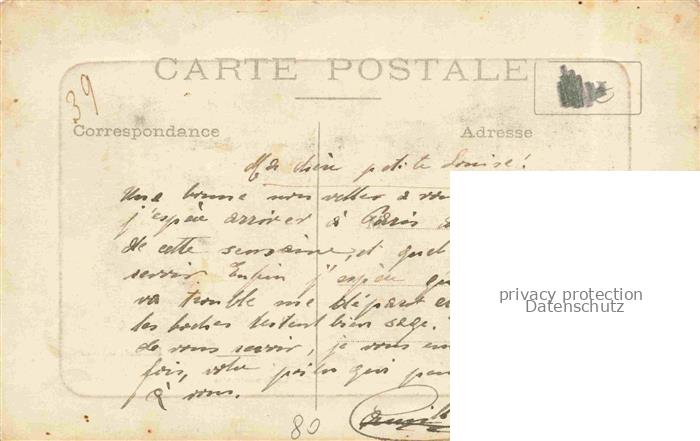 CARTE POSTALE
39
Correspondance
Adresse
Ma chère petite Louise!
Une bonne nouvelles a vou
j'espère arriver à Paris a
de cette semaine, et quel
revoir Enfin j'espère qu
va trouble me départ e
les boches restent bien sage.
de vous revoir, je vous en
fois, votre poilu qui pen
à vous.
80
privacy protection
Datenschutz